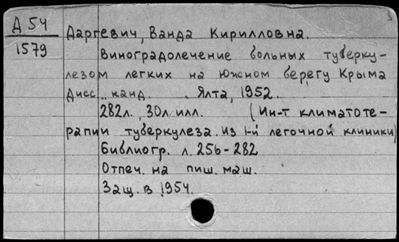 Д 54
1579
Даргевич, Ванда Кирилловна.
Виноградолечение больных туберку-
лезом легких на Южном берегу Крыма
Дисс... канд. Ялта, 1952.
282л., 30л илл. (Ин-т климатоте-
рапии туберкулеза. из 1-й легочной клиники)
Библиогр. л. 256-282
Отпеч. на пиш. маш.
Защ. в 1954.